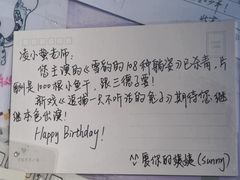 凌小蛰老师:
您主演的《雪豹的108种躺姿》已杀青,片
酬是1000根小鱼干,跟三根子蛋!
新戏《逗捕一只不听话的兔子》期待您继
续本色出演!
Happy Birthday!
爱你的 (sunny)